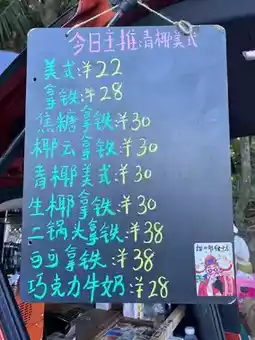 今日主推青椰美式
美式:¥22
拿铁:¥28
焦糖拿铁:¥30
椰云拿铁:¥30
青椰美式:¥30
生椰拿铁:¥30
二锅头拿铁:¥38
可可拿铁:¥38
巧克力牛奶:¥28